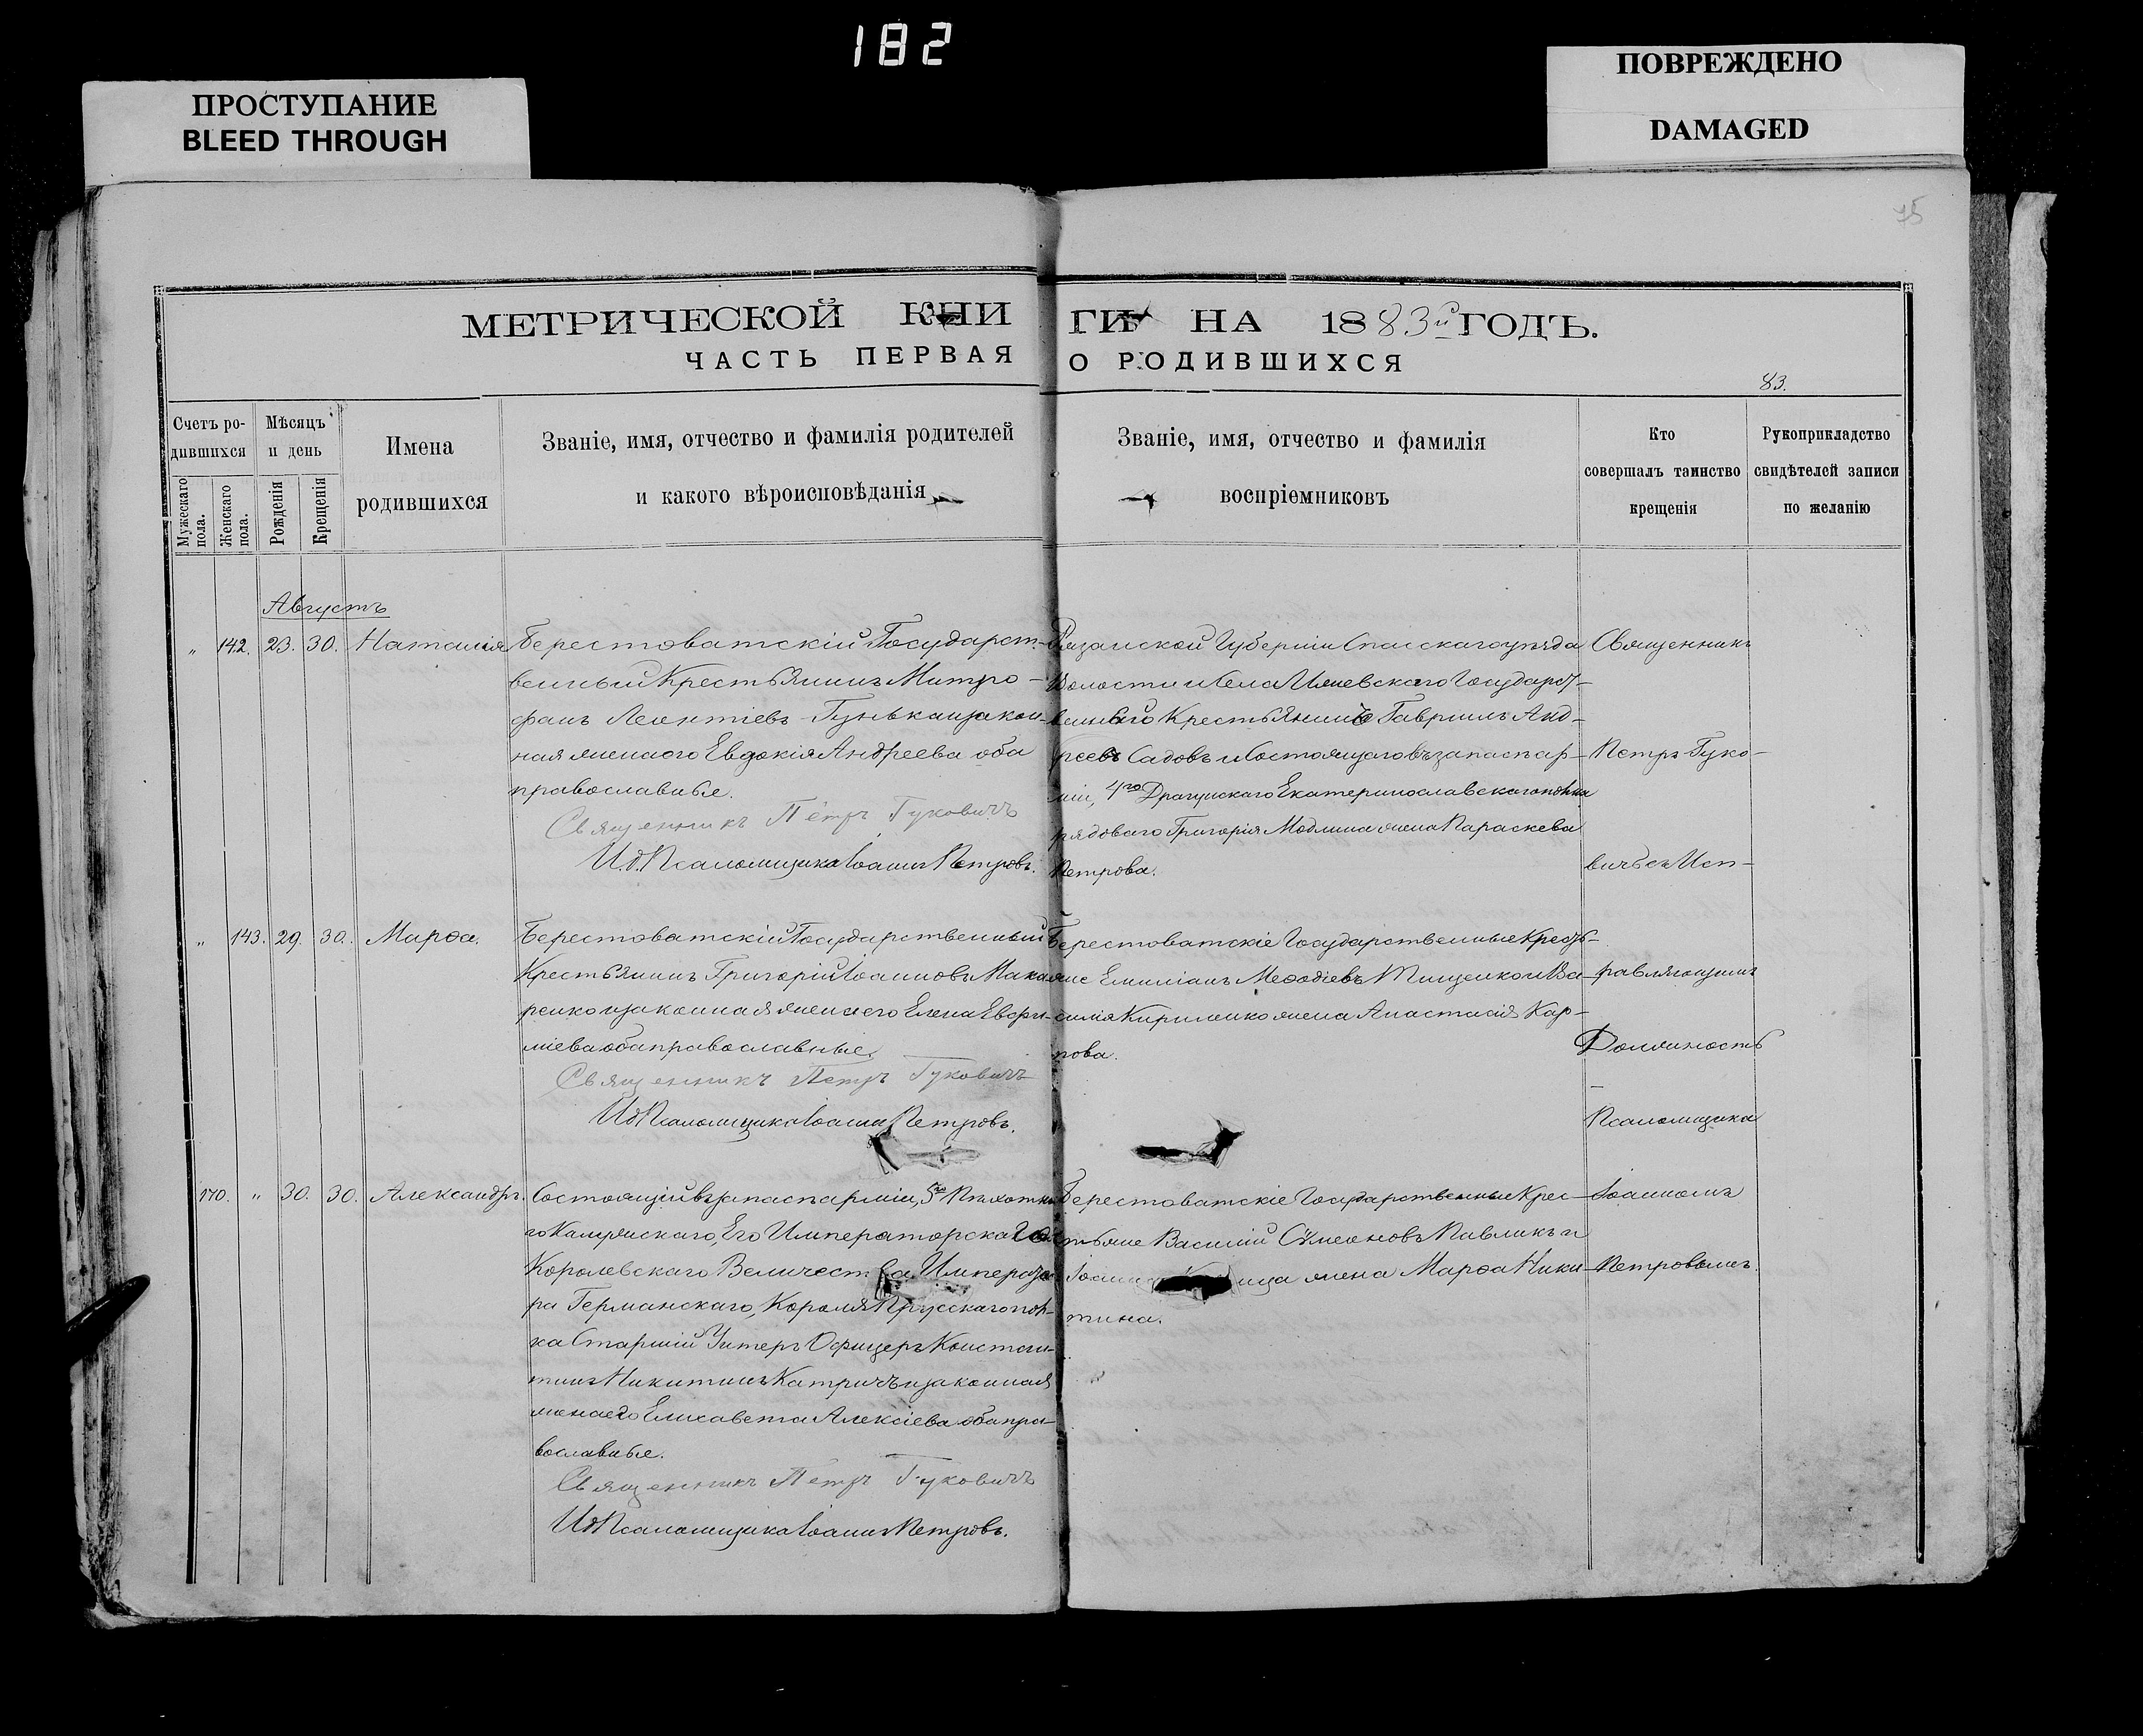 182
ПРОСТУПАНИЕ
BLEED THROUGH
ПОВРЕЖДЕНО
DAMAGED
75
МЕТРИЧЕСКОЙ КНИГИ НА 1883й ГОДЪ.
ЧАСТЬ ПЕРВАЯ О РОДИВШИХСЯ
83.
Счетъ ро-
дившихся
Мужескаго пола.
Женскаго пола.
Мѣсяцъ
и день
Рожденія
Крещенія
Имена
родившихся
Званіе, имя, отчество и фамилія родителей
и какого вѣроисповѣданія
Званіе, имя, отчество и фамилія
воспріемниковъ
Кто
совершалъ таинство
крещенія
Рукоприкладство
свидѣтелей записи
по желанію
Августъ
" 142. 23. 30. Наталія
Берестоватскій Государст-
венный Крестьянинъ Митро-
фанъ Леонтіевъ Гунька и закон-
ная жена его Евдокія Андреева оба
православные.
Священникъ Петръ Гуковичъ
И.д. Псаломщика Іоаннъ Петровъ.
Рязанской Губерніи Спасскаго уѣзда
Волости и Села Государст-
веннаго Крестьянина Гавріилъ Анд-
реевъ Садовъ и Состоящаго въ запасѣ ар-
міи, 4го Драгунскаго Екатеринославскаго полка
рядоваго Григорія жена Параскева
Петрова.
" 143. 29. 30. Марѳа.
Берестоватскій Государственный
Крестьянинъ Григорій Іоанновъ Мака-
ренко и законная жена его Елена Евфи-
міева оба православные.
Священникъ Петръ Гуковичъ
И.д. Псаломщика Іоаннъ Петровъ.
Берестоватскіе Государственные Кресть-
яне Емиліанъ Меѳодіевъ Тищенко и Ва-
силія Кириленко жена Анастасія Кар-
пова.
170. " 30. 30. Александръ.
Состоящій въ запасѣ арміи, 5го Пѣхотна-
го Калужскаго, Его Императорскаго
Королевскаго Величества Императо-
ра Германскаго, Короля Прусскаго пол-
ка Старшій Унтеръ Офицеръ Констан-
тинъ Никитинъ Катричъ и законная
жена его Елисавета Алексіева оба пра-
вославные.
Священникъ Петръ Гуковичъ
И.д. Псаломщика Іоаннъ Петровъ.
Берестоватскіе Государственные Крес-
тьяне Василій Сѵмеоновъ Павликъ и
жена Марѳа Ники-
тина.
Священникъ
Петръ Гуко-
вичъ съ Исп-
равляющимъ
Должность
Псаломщика
Іоанномъ
Петровымъ.